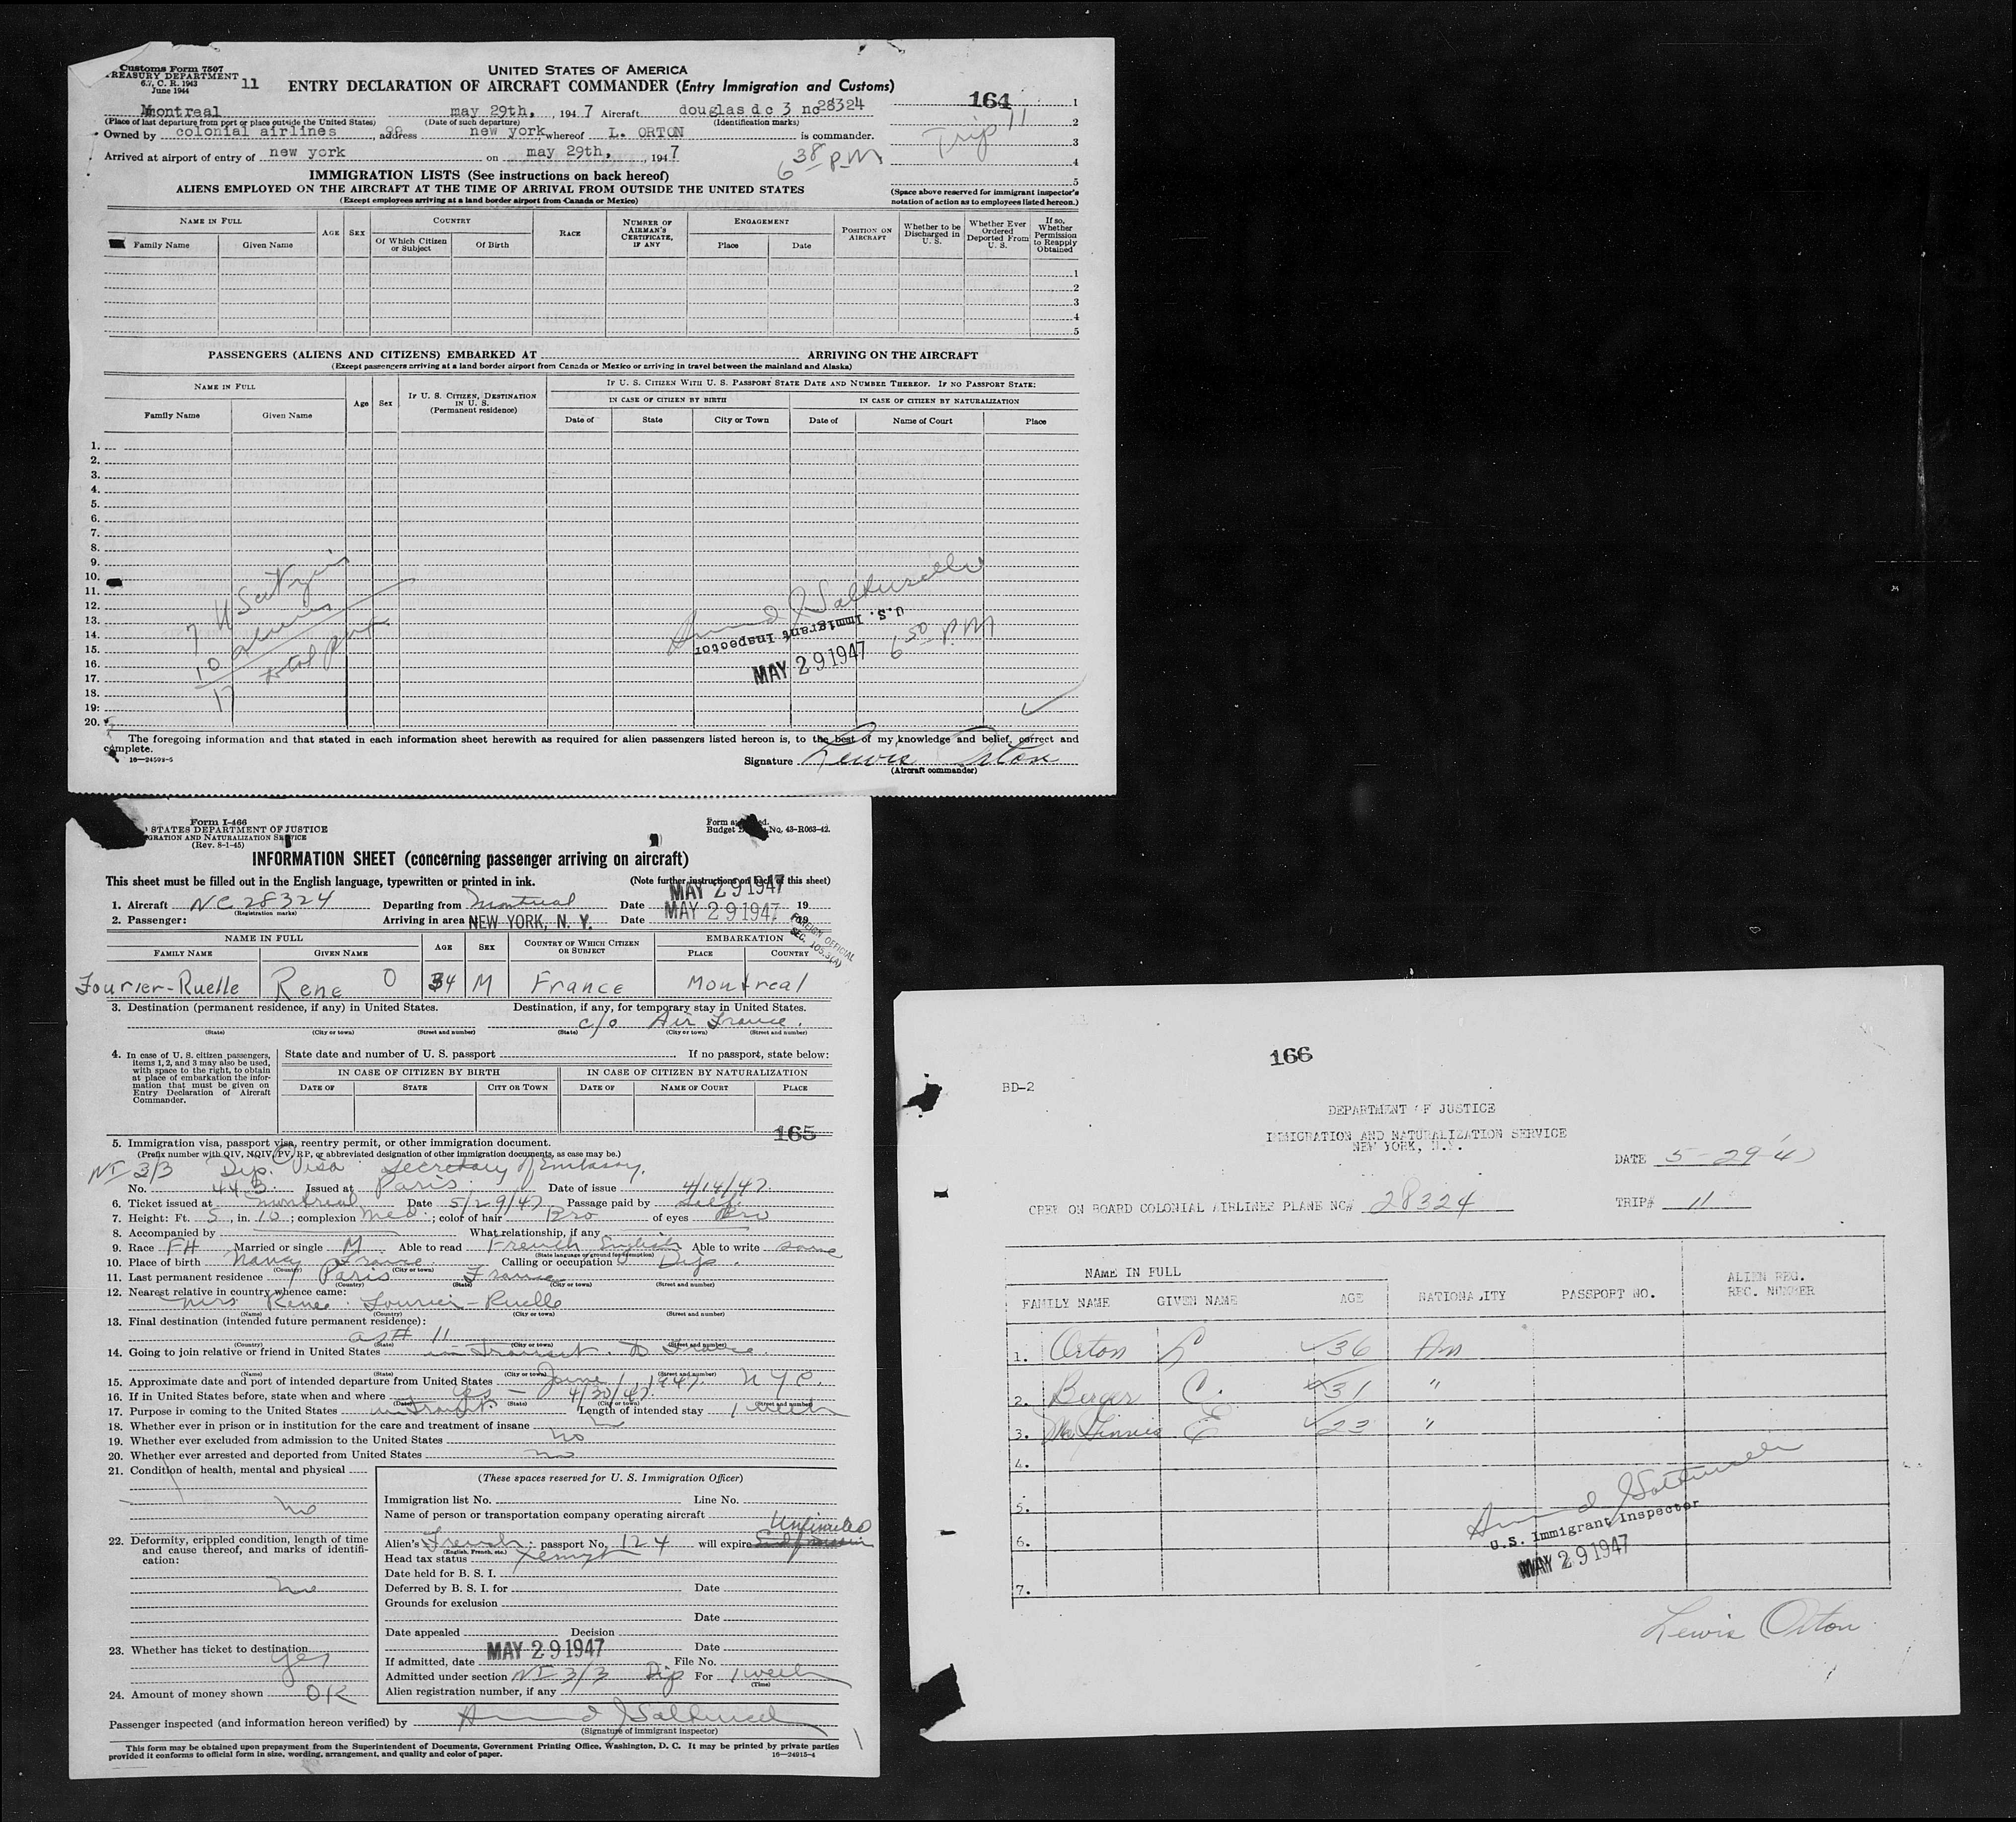 Customs Form 7507
TREASURY DEPARTMENT
6.7, C. R. 1943
June 1944
11
UNITED STATES OF AMERICA
ENTRY DECLARATION OF AIRCRAFT COMMANDER (Entry Immigration and Customs)
164
Trip 11
Montreal may 29th, , 194 7 Aircraft douglas d c 3 nc 28324
(Place of last departure from port or place outside the United States) (Date of such departure) (Identification marks)
Owned by colonial airlines , address new york whereof L. ORTON is commander.
Arrived at airport of entry of new york on may 29th, , 194 7
6 38 P.M
1
2
3
4
5
IMMIGRATION LISTS (See instructions on back hereof)
ALIENS EMPLOYED ON THE AIRCRAFT AT THE TIME OF ARRIVAL FROM OUTSIDE THE UNITED STATES
(Except employees arriving at a land border airport from Canada or Mexico)
(Space above reserved for immigrant inspector's notation of action as to employees listed hereon.)
NAME IN FULL
Family Name Given Name
AGE SEX
COUNTRY
Of Which Citizen or Subject Of Birth
RACE
NUMBER OF AIRMAN'S CERTIFICATE, IF ANY
ENGAGEMENT
Place Date
POSITION ON AIRCRAFT
Whether to be Discharged in U. S.
Whether Ever Ordered Deported From U. S.
If so, Whether Permission to Reapply Obtained
1
2
3
4
5
PASSENGERS (ALIENS AND CITIZENS) EMBARKED AT ARRIVING ON THE AIRCRAFT
(Except passengers arriving at a land border airport from Canada or Mexico or arriving in travel between the mainland and Alaska)
NAME IN FULL
Family Name Given Name
Age Sex
IF U. S. CITIZEN, DESTINATION IN U. S.
(Permanent residence)
IF U. S. CITIZEN WITH U. S. PASSPORT STATE DATE AND NUMBER THEREOF. IF NO PASSPORT STATE:
IN CASE OF CITIZEN BY BIRTH IN CASE OF CITIZEN BY NATURALIZATION
Date of State City or Town Date of Name of Court Place
1.
2.
3.
4.
5.
6.
7.
8.
9.
10.
11.
12.
13.
14.
15.
16.
17.
18.
19.
20.
7 U S citizens
10 aliens
17 total pax
U.S. Immigrant Inspector
MAY 29 1947
6 50 P.M
The foregoing information and that stated in each information sheet herewith as required for alien passengers listed hereon is, to the best of my knowledge and belief, correct and
complete.
16—24593-5
Signature Lewis Orton
(Aircraft commander)
Form I-466
STATES DEPARTMENT OF JUSTICE
GRATION AND NATURALIZATION SERVICE
(Rev. 8-1-45)
Budget No. 43-R063-42.
INFORMATION SHEET (concerning passenger arriving on aircraft)
This sheet must be filled out in the English language, typewritten or printed in ink. (Note further instructions on back of this sheet)
1. Aircraft NC 28324 Departing from Montreal Date MAY 29 1947 19
(Registration marks)
2. Passenger: Arriving in area NEW YORK, N. Y. Date MAY 29 1947 19
FOREIGN OFFICIAL
SEC. 105.3(A)
NAME IN FULL
FAMILY NAME GIVEN NAME
AGE SEX
COUNTRY OF WHICH CITIZEN OR SUBJECT
EMBARKATION
PLACE COUNTRY
Fourier-Ruelle Rene O 34 M France Montreal
3. Destination (permanent residence, if any) in United States. Destination, if any, for temporary stay in United States.
c/o Air France.
(State) (City or town) (Street and number) (State) (City or town) (Street and number)
4. In case of U. S. citizen passengers, items 1, 2, and 3 may also be used, with space to the right, to obtain at place of embarkation the information that must be given on Entry Declaration of Aircraft Commander.
State date and number of U. S. passport If no passport, state below:
IN CASE OF CITIZEN BY BIRTH IN CASE OF CITIZEN BY NATURALIZATION
DATE OF STATE CITY OR TOWN DATE OF NAME OF COURT PLACE
165
5. Immigration visa, passport visa, reentry permit, or other immigration document.
(Prefix number with QIV, NQIV, PV, RP, or abbreviated designation of other immigration documents, as case may be.)
NI 3/3 Dip. Visa Secretary of Embassy.
No. 443 Issued at Paris Date of issue 4/14/47.
6. Ticket issued at Montreal Date 5/29/47 Passage paid by Self
7. Height: Ft. 5, in. 10; complexion Med.; color of hair Bro of eyes Bro
8. Accompanied by What relationship, if any
9. Race FH Married or single M Able to read French English Able to write same
(State language or ground for exemption)
10. Place of birth Nancy France. Calling or occupation Dip.
(Country) (City or town)
11. Last permanent residence Paris France
(Country) (State) (City or town) (Street and number)
12. Nearest relative in country whence came:
Mrs Renee Fourier-Ruelle
(Name) (Country) (City or town) (Street and number)
13. Final destination (intended future permanent residence):
as # 11
(Country) (State) (City or town) (Street and number)
14. Going to join relative or friend in United States in transit to France.
(Name) (State) (City or town) (Street and number)
15. Approximate date and port of intended departure from United States June 1, 1947. NYC.
16. If in United States before, state when and where Yes — 4/30/47.
(Date) (State) (City or town) (Street and number)
17. Purpose in coming to the United States in transit Length of intended stay 1 week
18. Whether ever in prison or in institution for the care and treatment of insane no
19. Whether ever excluded from admission to the United States no
20. Whether ever arrested and deported from United States no
21. Condition of health, mental and physical
no
22. Deformity, crippled condition, length of time and cause thereof, and marks of identification:
no
23. Whether has ticket to destination
yes
24. Amount of money shown OK
(These spaces reserved for U. S. Immigration Officer)
Immigration list No. Line No.
Name of person or transportation company operating aircraft
Unlimited
Alien's French passport No. 124 will expire
(English, French, etc.)
Head tax status exempt
Date held for B. S. I.
Deferred by B. S. I. for Date
Grounds for exclusion
Date
Date appealed Decision
Date
If admitted, date MAY 29 1947 File No.
Admitted under section NI 3/3 Dip For 1 week
(Time)
Alien registration number, if any
Passenger inspected (and information hereon verified) by
(Signature of immigrant inspector)
This form may be obtained upon prepayment from the Superintendent of Documents, Government Printing Office, Washington, D. C. It may be printed by private parties
provided it conforms to official form in size, wording, arrangement, and quality and color of paper.
16—24915-4
166
BD-2
DEPARTMENT OF JUSTICE
IMMIGRATION AND NATURALIZATION SERVICE
NEW YORK, N.Y.
DATE 5-29-47
CREW ON BOARD COLONIAL AIRLINES PLANE NC# 28324 TRIP# 11
NAME IN FULL
FAMILY NAME GIVEN NAME AGE NATIONALITY PASSPORT NO. ALIEN REG. REC. NUMBER
1. Orton L 36 Am
2. Berger C. 31 "
3. McGinnis E 23 "
4.
5.
6.
7.
U.S. Immigrant Inspector
MAY 29 1947
Lewis Orton